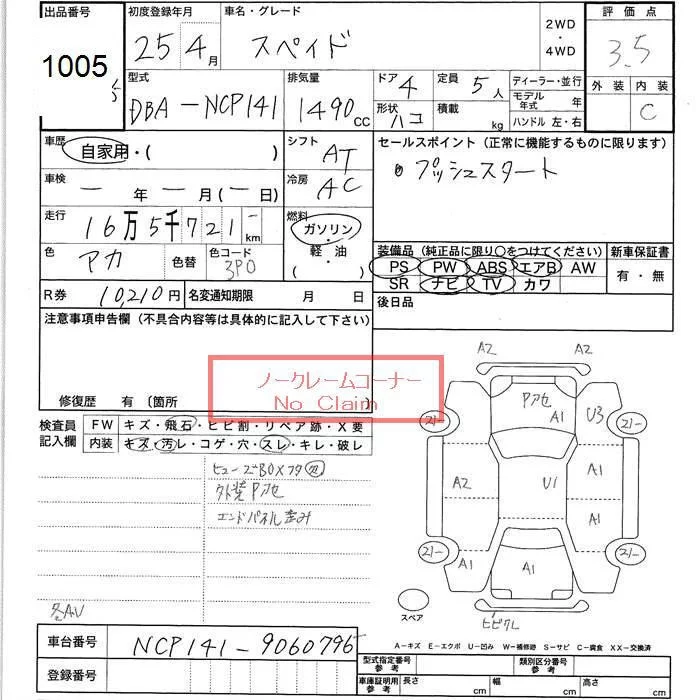 出品番号 初度登録年月 車名・グレード 2WD・4WD 評価点
1005 25 4月 スペイド 3.5
型式 排気量 ドア 4 定員 5人 ディーラー・並行 外装 内装
DBA-NCP141 1490cc 形状 ハコ 積載 kg モデル年式 年 C
ハンドル 左・右
車歴 自家用・( ) シフト AT セールスポイント (正常に機能するものに限ります)
車検 ー年ー月(ー日) 冷房 AC プッシュスタート
走行 16万5千721km 燃料 ガソリン・軽・油・( )
色 アカ 色替 色コード 3P0
装備品 (純正品に限り○をつけてください) 新車保証書
PS PW ABS エアB AW 有・無
SR ナビ TV カワ
R券 10,210円 名変通知期限 月 日 後日品
注意事項申告欄 (不具合内容等は具体的に記入して下さい)
ノークレームコーナー
No Claim
修復歴 有 〔箇所
検査員記入欄 FW キズ・飛石・ヒビ割・リペア跡・X要
内装 キズ・汚レ・コゲ・穴・スレ・キレ・破レ
ヒューズBOXフタ欠
外装Pアセ
エンドパネル歪み
A2 A2
Pアセ A1 U3
21- 21-
A2 U1 A1
A1
21- 21-
A1 A1
スペア
ヒビワレ
A-キズ E-エクボ U-凹み W-補修跡 S-サビ C-腐食 XX-交換済
車台番号 NCP141-9060796
登録番号
型式指定番号 参考 類別区分番号 参考
車庫証明用 参考 長さ cm 幅 cm 高さ cm